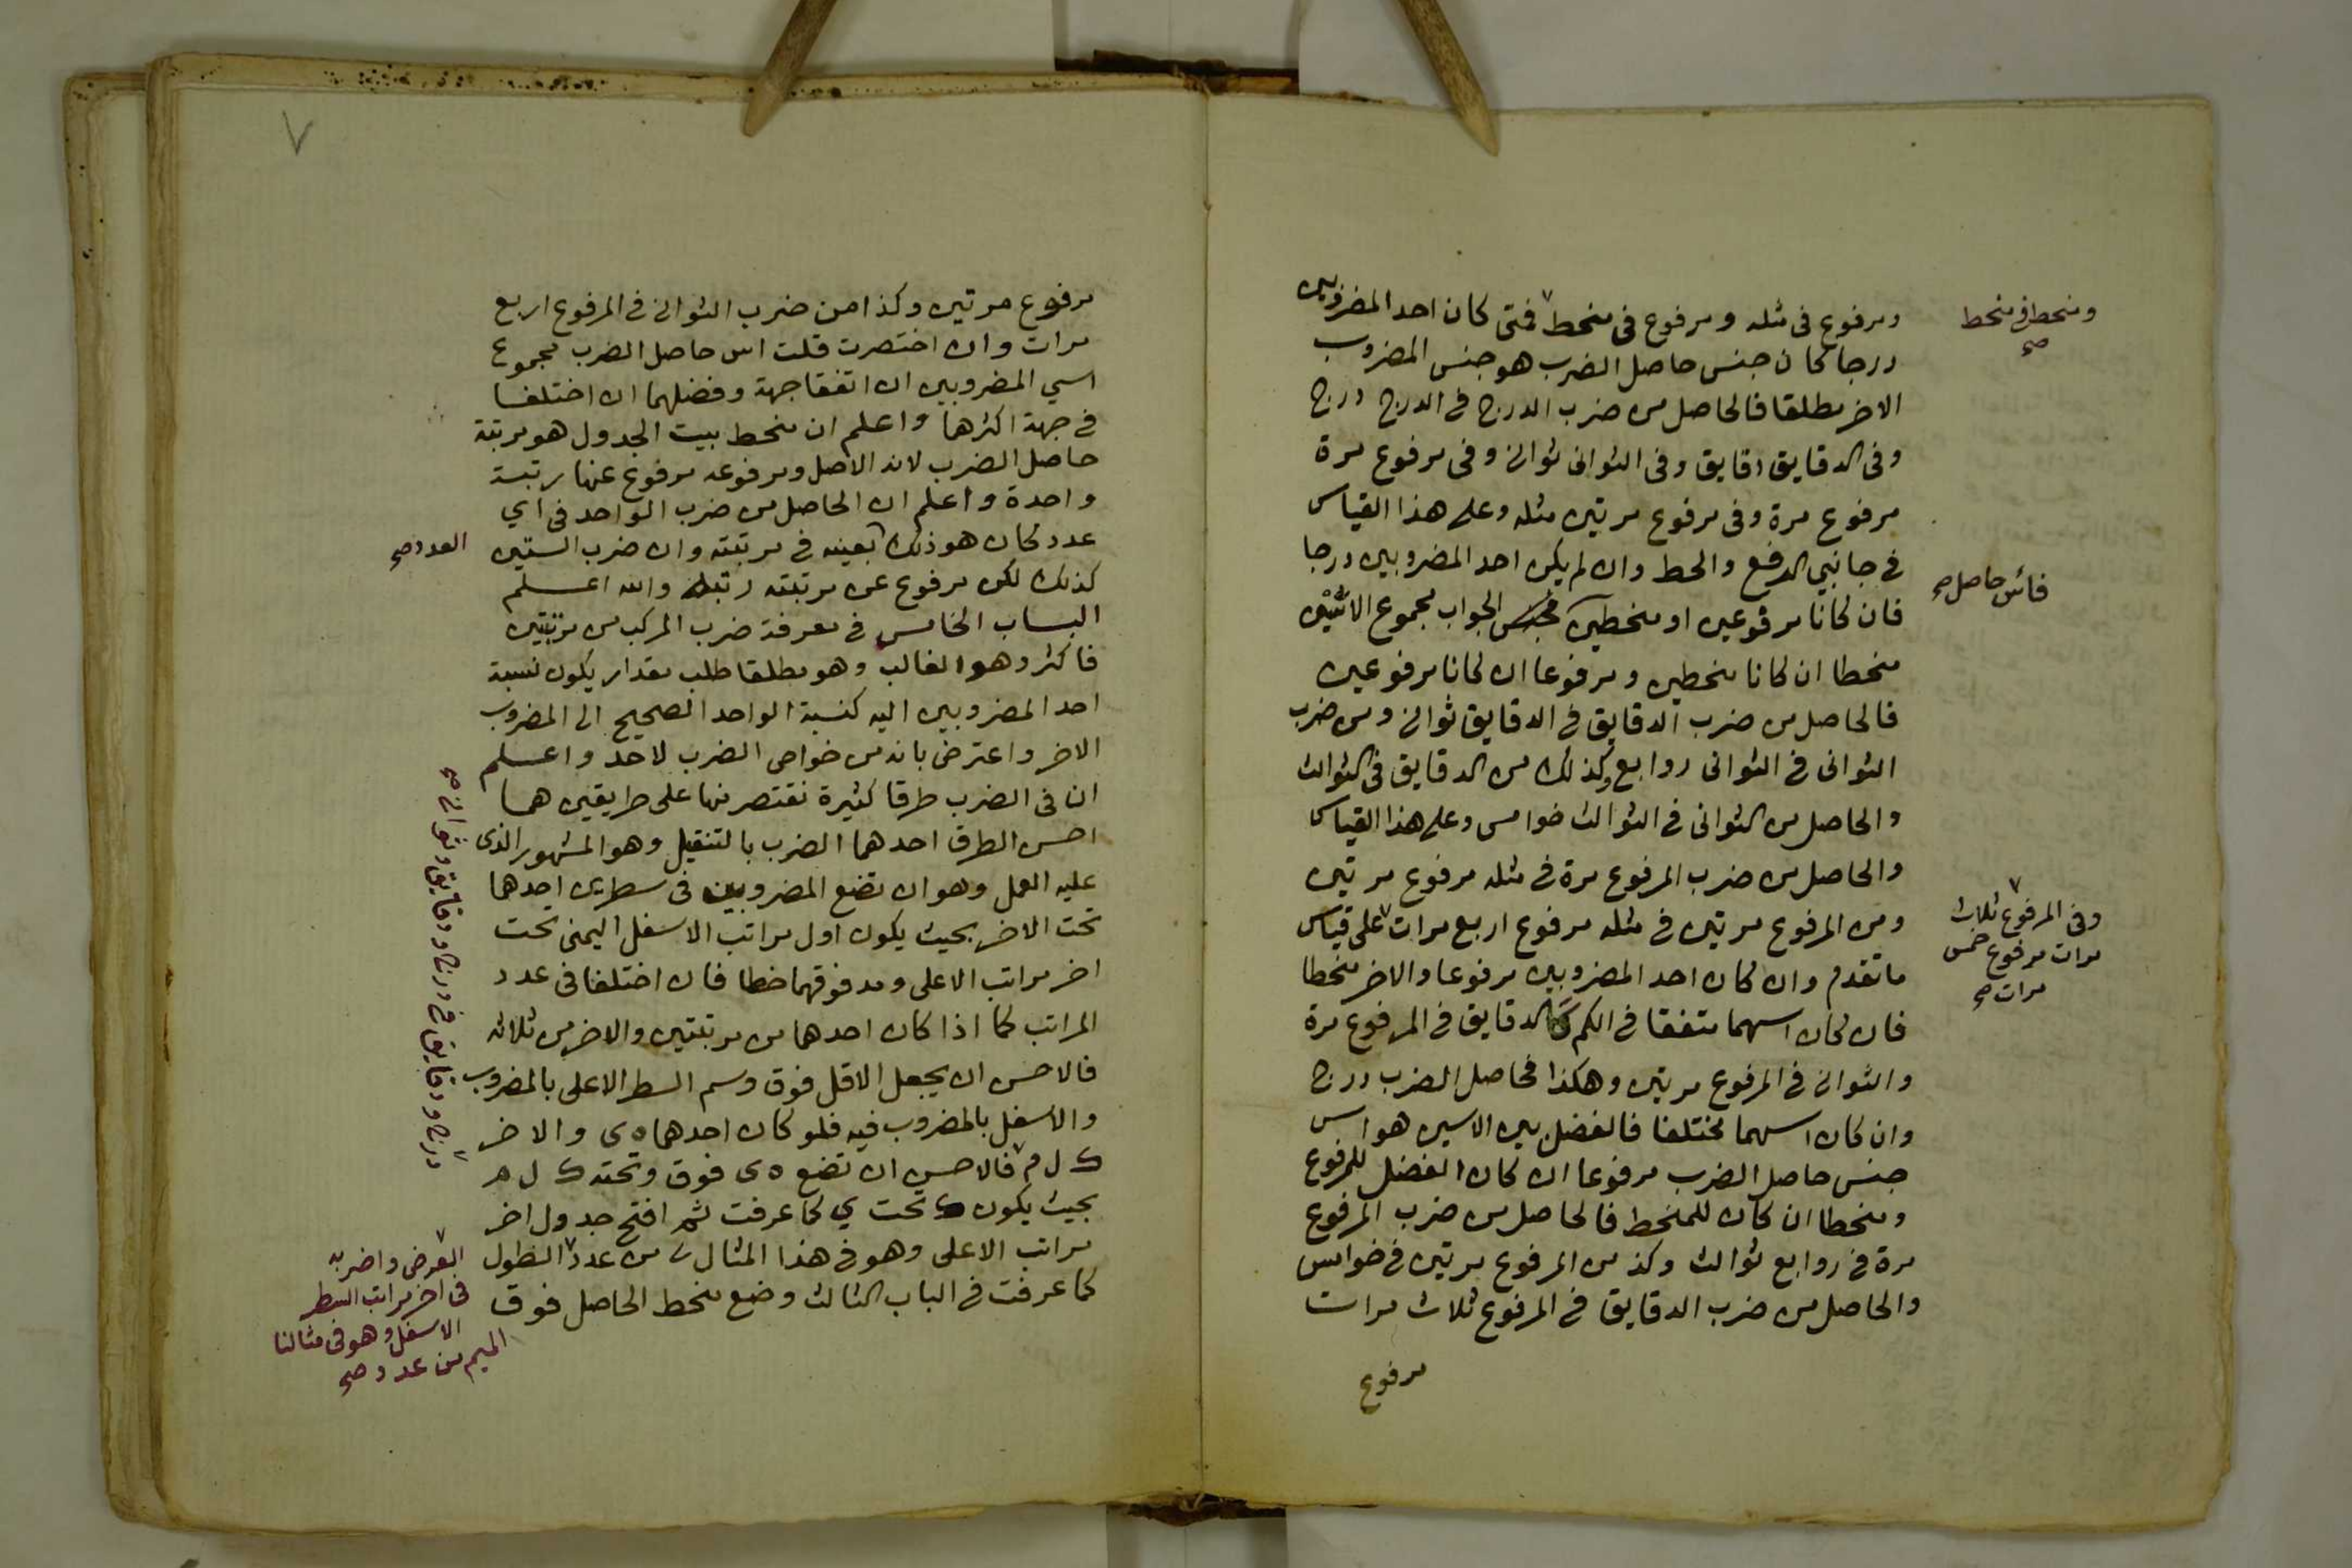 ومرفوع فى مثله ومرفوع فى منحط فمتى كان احد المضروبين
درجا كان جنس حاصل الضرب هو جنس المضروب
الاخر مطلقا فالحاصل من ضرب الدرج فى الدرج درج
وفى الدقايق دقايق وفى الثوانى ثوانى وفى مرفوع مرة
مرفوع مرة وفى مرفوع مرتين مثله وعلى هذا القياس
فى جانبي الرفع والحط وان لم يكن احد المضروبين درجا
فان كانا مرفوعين او منحطين الجواب مجموع الاسين
منحطا ان كانا منحطين ومرفوعا ان كانا مرفوعين
فالحاصل من ضرب الدقايق فى الدقايق ثوانى ومن ضرب
الثوانى فى الثوانى روابع وكذلك من الدقايق فى الثوالث
والحاصل من الثوانى فى الثوالث خوامس وعلى هذا القياس
والحاصل من ضرب المرفوع مرة فى مثله مرفوع مرتين
ومن المرفوع مرتين فى مثله مرفوع اربع مرات على قياس
ما تقدم وان كان احد المضروبين مرفوعا والاخر منحطا
فان كان اسهما متفقا فى الكم كالدقايق فى المرفوع مرة
والثوانى فى المرفوع مرتين وهكذا فحاصل الضرب درج
وان كان اسهما مختلفا فالفضل بين الاسين هو اس
جنس حاصل الضرب مرفوعا ان كان الفضل للمرفوع
ومنحطا ان كان للمنحط فالحاصل من ضرب المرفوع
مرة فى روابع ثوالث وكذ من المرفوع مرتين فى خوامس
والحاصل من ضرب الدقايق فى المرفوع ثلاث مرات
مرفوع
ومنحط فى منحط
صح
فاس حاصل صح
وفى المرفوع ثلاث
مرات مرفوع خمس
مرات صح
٧
مرفوع مرتين وكذا من ضرب الثوانى فى المرفوع اربع
مرات وان اختصرت قلت اس حاصل الضرب مجموع
اسي المضروبين ان اتفقا جهة وفضلهما ان اختلفا
فى جهة اكثرهما واعلم ان منحط بيت الجدول هو مرتبة
حاصل الضرب لانه الاصل ومرفوعه مرفوع عنها رتبة
واحدة واعلم ان الحاصل من ضرب الواحد فى اي
عدد كان هو ذلك بعينه فى مرتبته وان ضرب الستين
كذلك لكن مرفوع عن مرتبته رتبة والله اعلم
الباب الخامس فى معرفة ضرب المركب من مرتبتين
فاكثر وهو الغالب وهو مطلقا طلب مقدار يكون نسبة
احد المضروبين اليه كنسبة الواحد الصحيح الى المضروب
الاخر واعترض بانه من خواص الضرب لا حد واعلم
ان فى الضرب طرقا كثيرة نقتصر منها على طريقين هما
احسن الطرق احدهما الضرب بالتنقيل وهو المشهور الذى
عليه العمل وهو ان تضع المضروبين فى سطرين احدهما
تحت الاخر بحيث يكون اول مراتب الاسفل اليمنى تحت
اخر مراتب الاعلى ومد فوقهما خطا فان اختلفا فى عدد
المراتب كما اذا كان احدهما من مرتبتين والاخر من ثلاثه
فالاحسن ان يجعل الاقل فوق وسم السطر الاعلى بالمضروب
والاسفل بالمضروب فيه فلو كان احدهما ه ى والاخر
ك ل م فالاحسن ان تضع ه ى فوق وتحته ك ل م
بحيث يكون ك تحت ي كما عرفت ثم افتح جدول اخر
مراتب الاعلى وهو فى هذا المثال ى من عدد الطول
كما عرفت فى الباب الثالث وضع منحط الحاصل فوق
العدد صح
درج ودقايق فى درج ودقايق وثوانى صح
العرض واضربه
فى اخر مراتب السطر
الاسفل وهو فى مثالنا
الميم من عدد صح